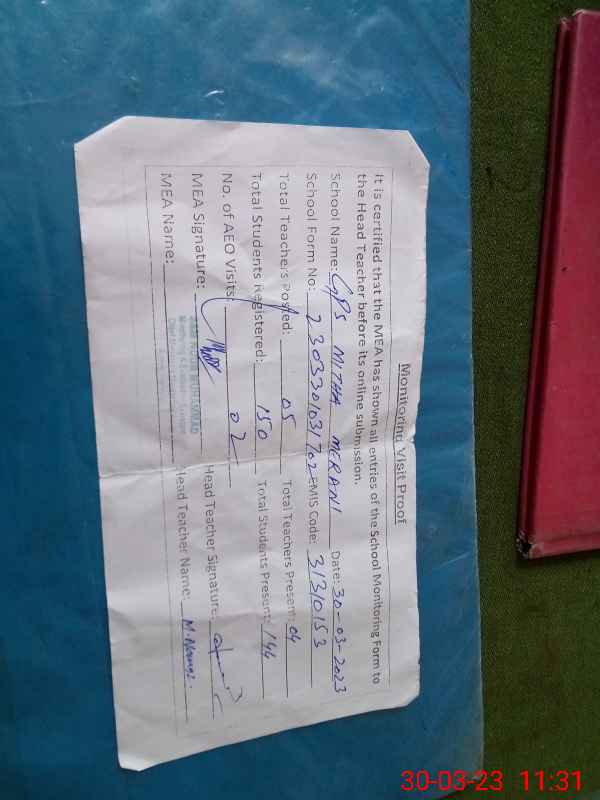 Monitoring Visit Proof
It is certified that the MEA has shown all entries of the School Monitoring Form to
the Head Teacher before its online submission.
School Name: GPS MITHA MERANI Date: 30-03-2023
School Form No: 2303301031702 EMIS Code: 31310153
Total Teachers Posted: 05 Total Teachers Present: 04
Total Students Registered: 150 Total Students Present: 144
No. of AEO Visits: 02
MEA Signature: Head Teacher Signature:
MEA Name: Head Teacher Name: M.
30-03-23 11:31